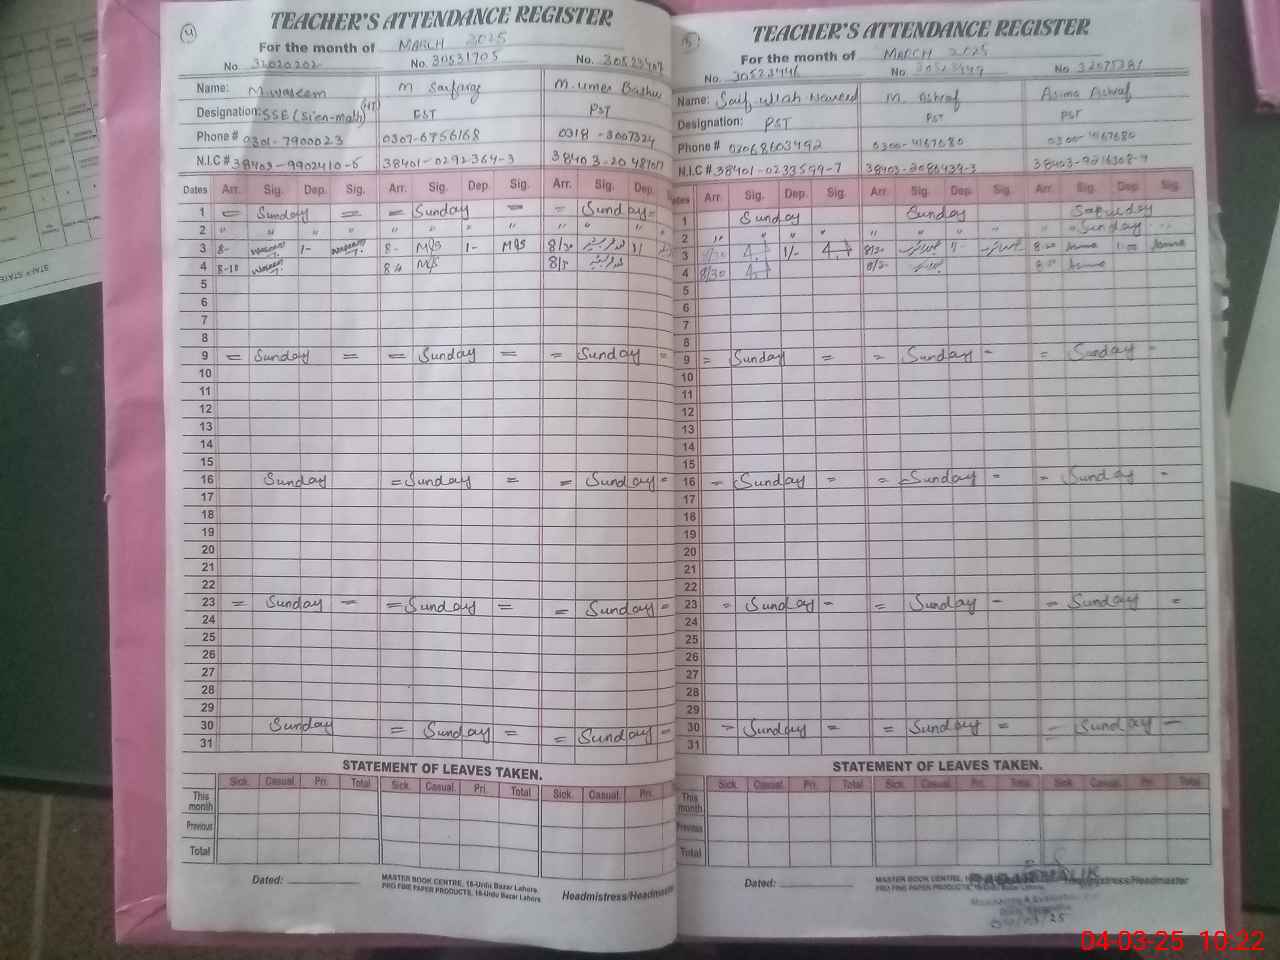 4
TEACHER'S ATTENDANCE REGISTER
For the month of MARCH 2025
No. 32020202 No. 30531705 No. 30523407
Name: M. Waseem M Sarfaraz M. Umer Bashir
Designation: SSE (Scien-math) EST PST
Phone # 0301-7900023 0307-6756168 0318-3007324
N.I.C # 38403-9902410-5 38401-0292364-3
Dates Arr. Sig. Dep. Sig. Arr. Sig. Dep. Sig. Arr. Sig. Dep.
1 = Sunday = = Sunday = = Sunday =
2 " " " " " " " " " " "
3 8- 1- 8- MS 1- MS 8/30 1/
4 8-10 MS
5
6
7
8
9 = Sunday = = Sunday = = Sunday =
10
11
12
13
14
15
16 Sunday = Sunday = = Sunday =
17
18
19
20
21
22
23 = Sunday = = Sunday = = Sunday =
24
25
26
27
28
29
30 Sunday = Sunday = = Sunday =
31
STATEMENT OF LEAVES TAKEN.
Sick. Casual. Pri. Total Sick. Casual. Pri. Total Sick. Casual. Pri.
This month
Previous
Total
Dated: MASTER BOOK CENTRE, 16-Urdu Bazar Lahore.
PRO FINE PAPER PRODUCTS, 16-Urdu Bazar Lahore.
Headmistress/Headmaster
5
TEACHER'S ATTENDANCE REGISTER
For the month of MARCH 2025
No. 30523446 No. 30523449 No. 32075281
Name: Saif ullah Naveed M. Ashraf Asima Ashraf
Designation: PST PST PST
Phone # 03068603492 0300-4167680 0300-4167680
N.I.C # 38401-0233599-7 38403-2086439-3 38403-9216308-4
Dates Arr. Sig. Dep. Sig. Arr. Sig. Dep. Sig. Arr. Sig. Dep. Sig.
1 Sunday Sunday Saturday
2 " " " " " " " " " Sunday
3 8/30 1/- 8/30 1-
4 8/30
5
6
7
8
9 = Sunday = = Sunday = = Sunday =
10
11
12
13
14
15
16 = Sunday = = Sunday = = Sunday =
17
18
19
20
21
22
23 = Sunday = = Sunday = = Sunday =
24
25
26
27
28
29
30 = Sunday = = Sunday = = Sunday =
31
STATEMENT OF LEAVES TAKEN.
Sick. Casual. Pri. Total Sick. Casual. Pri. Total Sick. Casual. Pri. Total
This month
Previous
Total
Dated: MASTER BOOK CENTRE, 16-Urdu Bazar Lahore.
PRO FINE PAPER PRODUCTS, 16-Urdu Bazar Lahore.
Headmistress/Headmaster
04-03-25 10:22